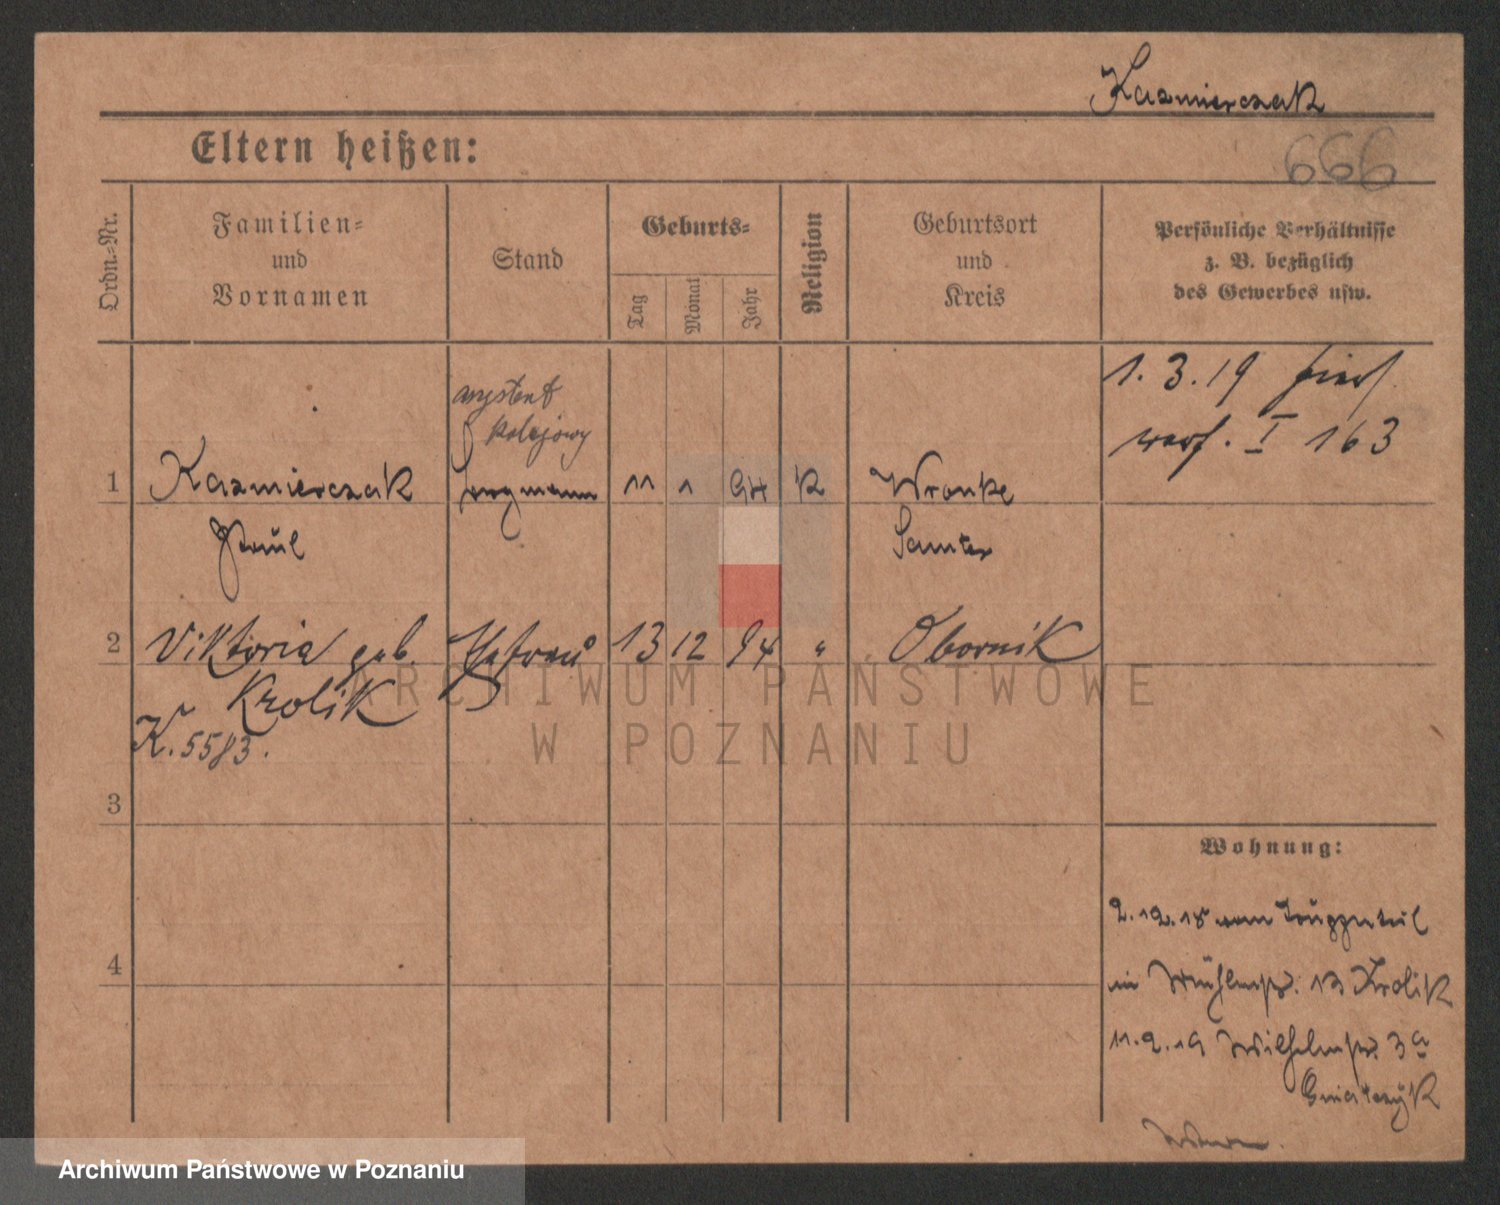 Kazmierczak
Eltern heißen:
666
Ordn.-Nr.
Familien-
und
Vornamen
Stand
Geburts-
Tag
Monat
Jahr
Religion
Geburtsort
und
Kreis
Persönliche Verhältnisse
z. B. bezüglich
des Gewerbes usw.
1.3.19
I 163
asystent
kolejowy
1 Kazmierczak 11 1 94 K Wronke
Paul Samter
2 Viktoria geb. Ehefrau 13 12 94 " Obornik
Krolik
K. 5583.
3
4
Wohnung:
2.12.18 vom Truppenteil
in Mühlenstr. 13 Krolik
11.2.19 Wilhelmstr. 3a
ARCHIWUM PAŃSTWOWE
W POZNANIU
Archiwum Państwowe w Poznaniu